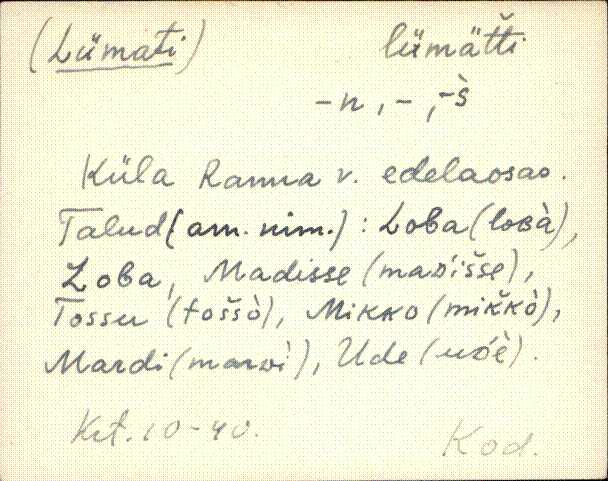 (Lümati) lümätti
-n, -, -s̀
Küla Ranna v. edelaosas.
Talud (am. nim.): Loba (lobà),
Loba, Madisse
Tossu (toššò), Mikko (mikkò),
Mardi, Ude
Krt. 10-40. Kod.